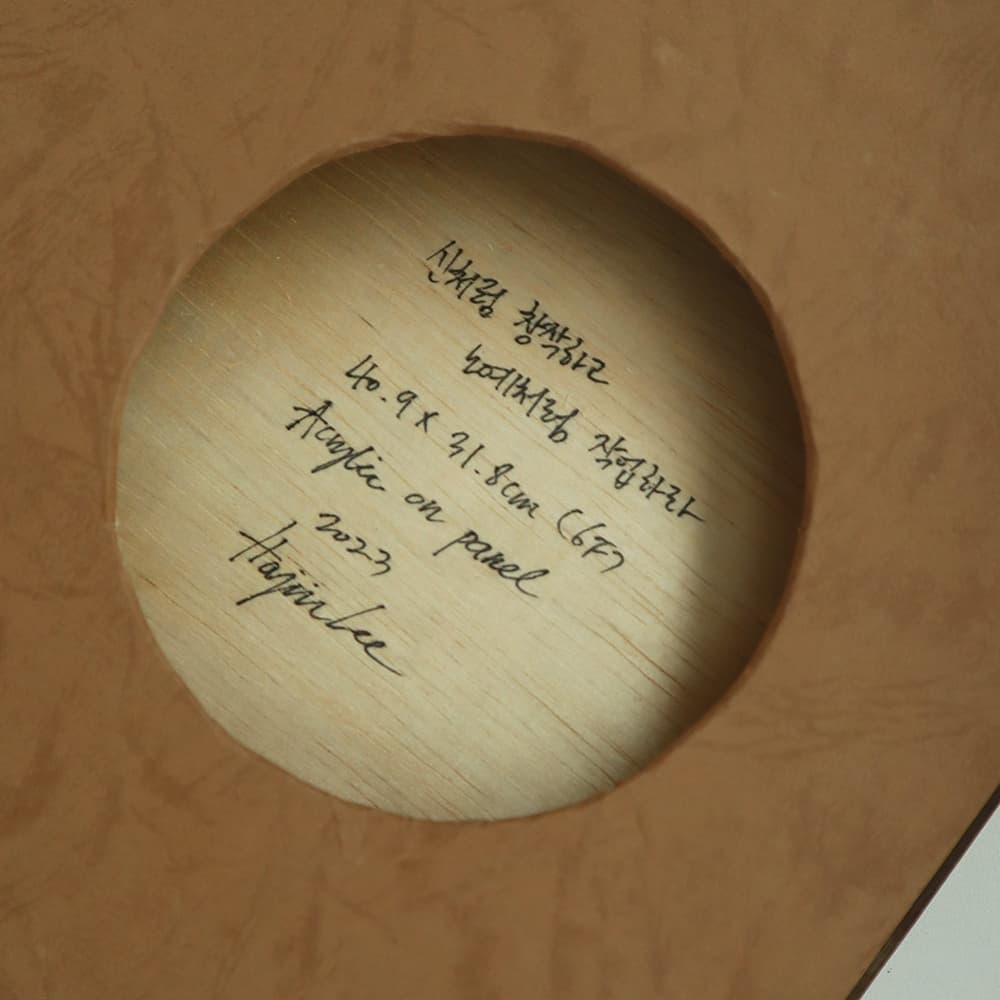 신처럼 창작하고
노예처럼 작업하라
40.9 x 31.8cm (6F)
Acrylic on panel
2023
Hajin Lee